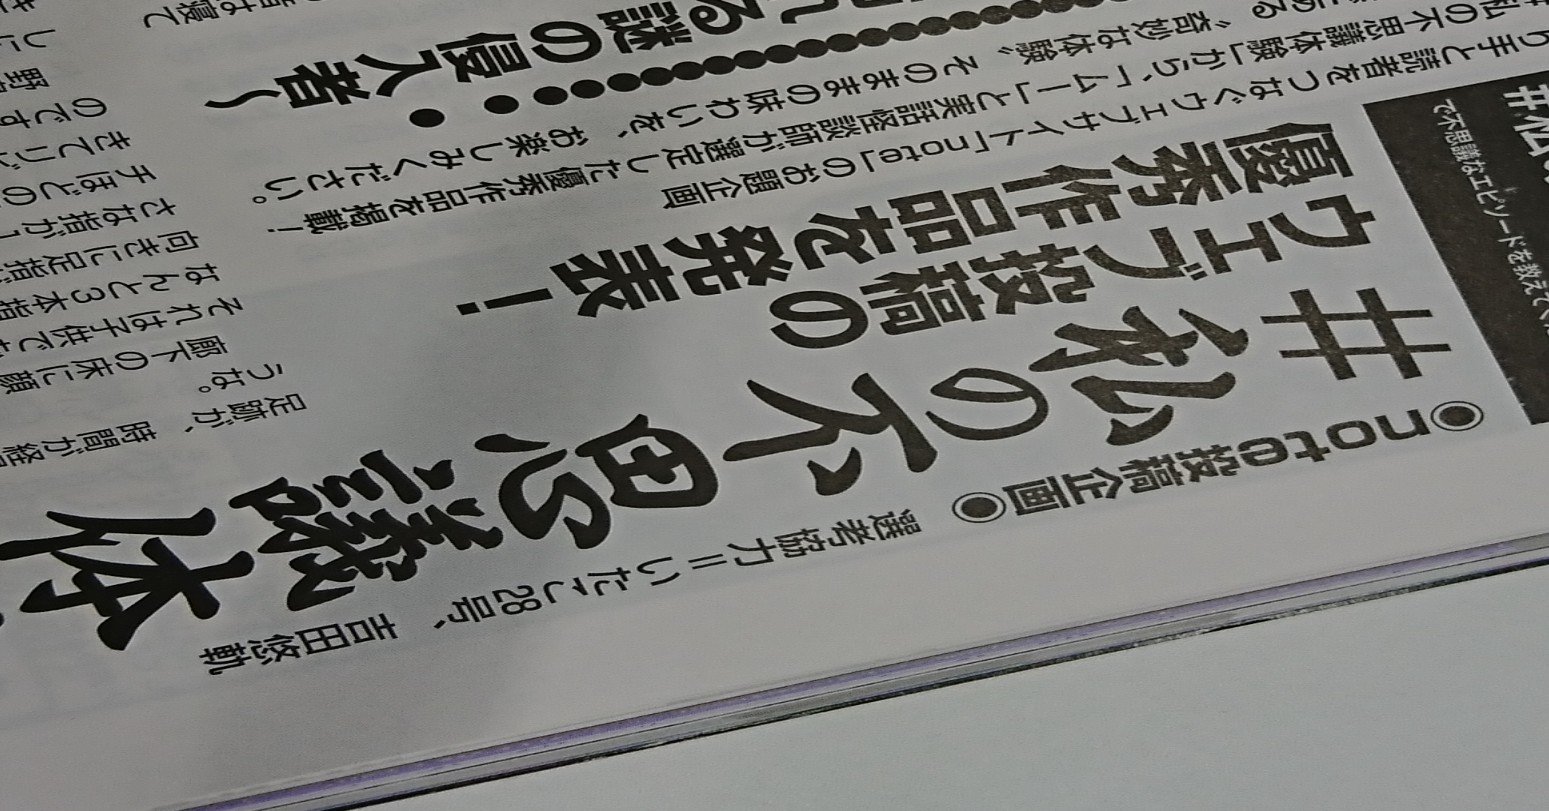 ◉noteの投稿企画◉
選考協力=いたこ28号、吉田悠軌
#私の不思議体
ウェブ投稿の
優秀作品を発表!
り手と読者をつなぐウェブサイト「note」のお題企画
私の不思議体験」から、「ムー」と実話怪談師が選定した優秀作品を掲載!
“奇妙な体験”そのままの味わいを、お楽しみください。
れる謎の侵入者〜
#私の
で不思議なエピソードを教えてく
足跡が、時間が経
うな。
廊下の床に顔
それは子供で
なんと3本指
向きに足指
さな指が1
チほどの
きてりど
のです